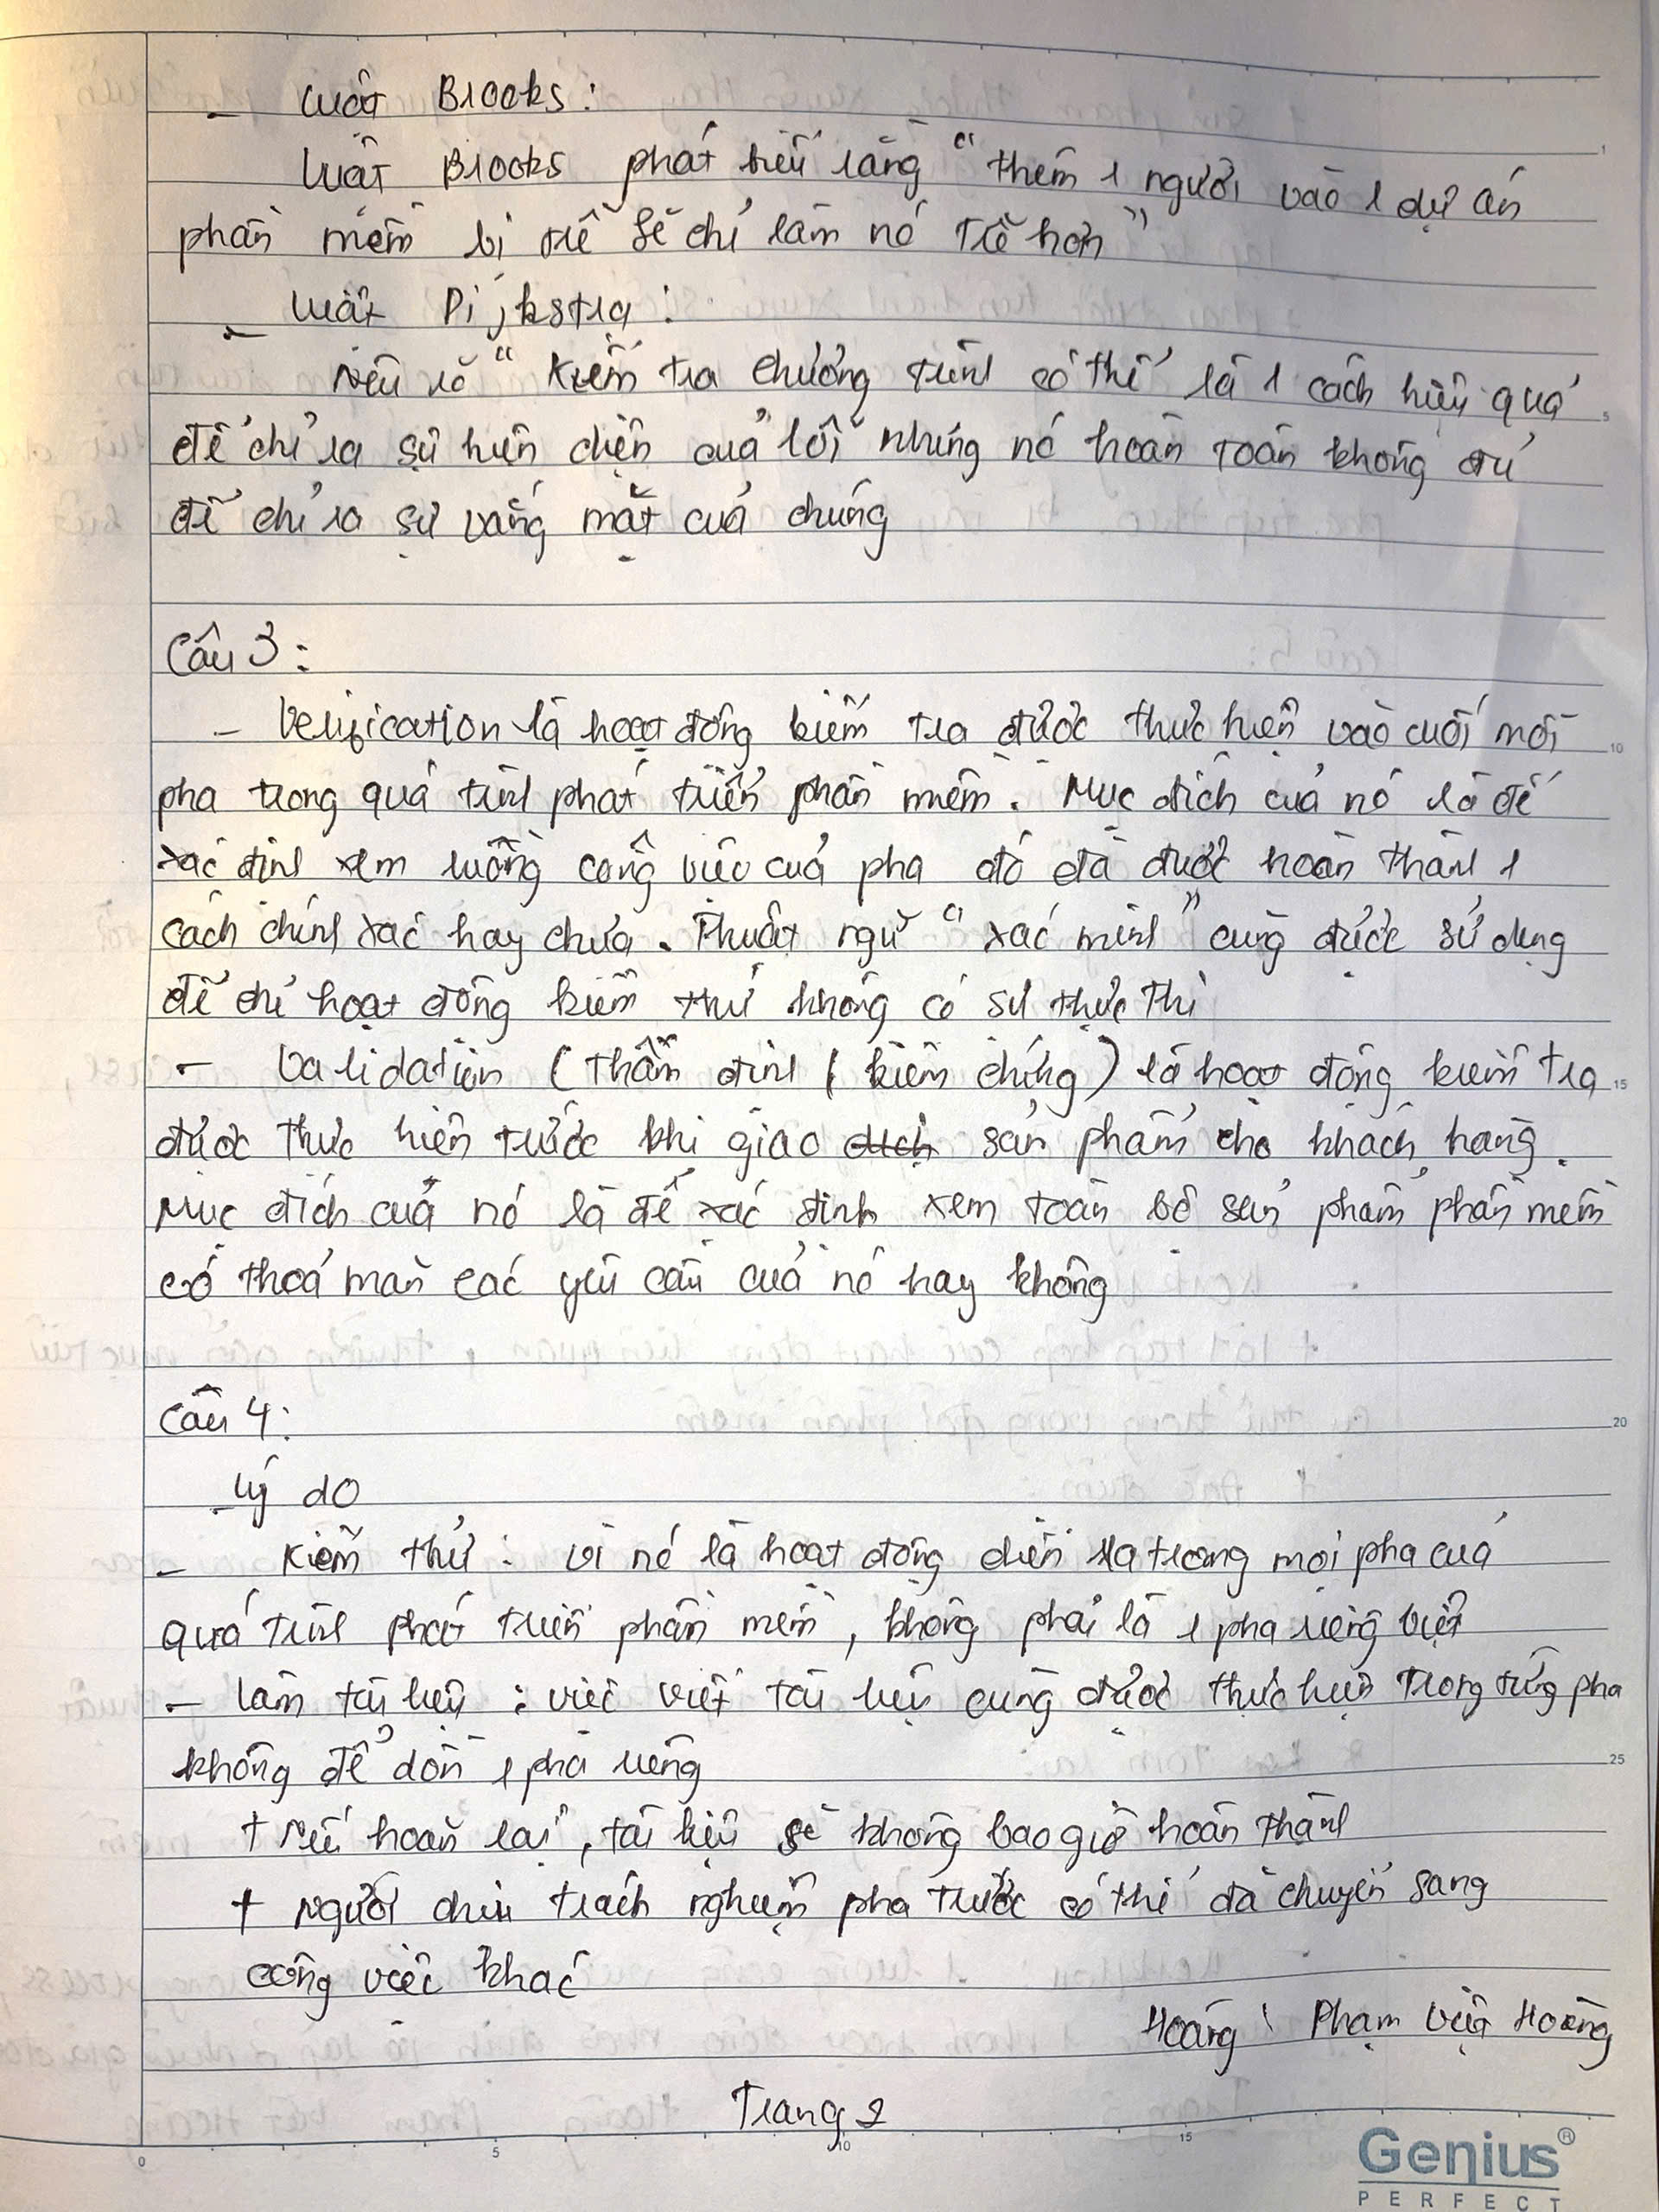 - Luật Brooks:
Luật Brooks phát biểu rằng "thêm 1 người vào 1 dự án
phần mềm bị trễ sẽ chỉ làm nó trễ hơn"
- Luật Dijkstra:
Nêu rõ "Kiểm tra chương trình có thể là 1 cách hiệu quả
để chỉ ra sự hiện diện của lỗi nhưng nó hoàn toàn không đủ
để chỉ ra sự vắng mặt của chúng
Câu 3:
- Verification là hoạt động kiểm tra được thực hiện vào cuối mỗi
pha trong quá trình phát triển phần mềm. Mục đích của nó là để
xác định xem luồng công việc của pha đó đã được hoàn thành 1
cách chính xác hay chưa. Thuật ngữ "xác minh" cũng được sử dụng
để chỉ hoạt động kiểm thử không có sự thực thi
- Validation (thẩm định / kiểm chứng) là hoạt động kiểm tra
được thực hiện trước khi giao dịch sản phẩm cho khách hàng.
Mục đích của nó là để xác định xem toàn bộ sản phẩm phần mềm
có thoả mãn các yêu cầu của nó hay không
Câu 4:
- Lý do
- Kiểm thử: vì nó là hoạt động diễn ra trong mọi pha của
quá trình phát triển phần mềm, không phải là 1 pha riêng biệt
- Làm tài liệu: việc viết tài liệu cũng được thực hiện trong từng pha
không để dồn 1 pha riêng
+ Nếu hoãn lại, tài liệu sẽ không bao giờ hoàn thành
+ Người chịu trách nghiệm pha trước có thể đã chuyển sang
công việc khác
Hoàng \ Phạm Việt Hoàng
Trang 2
Genius®
PERFECT